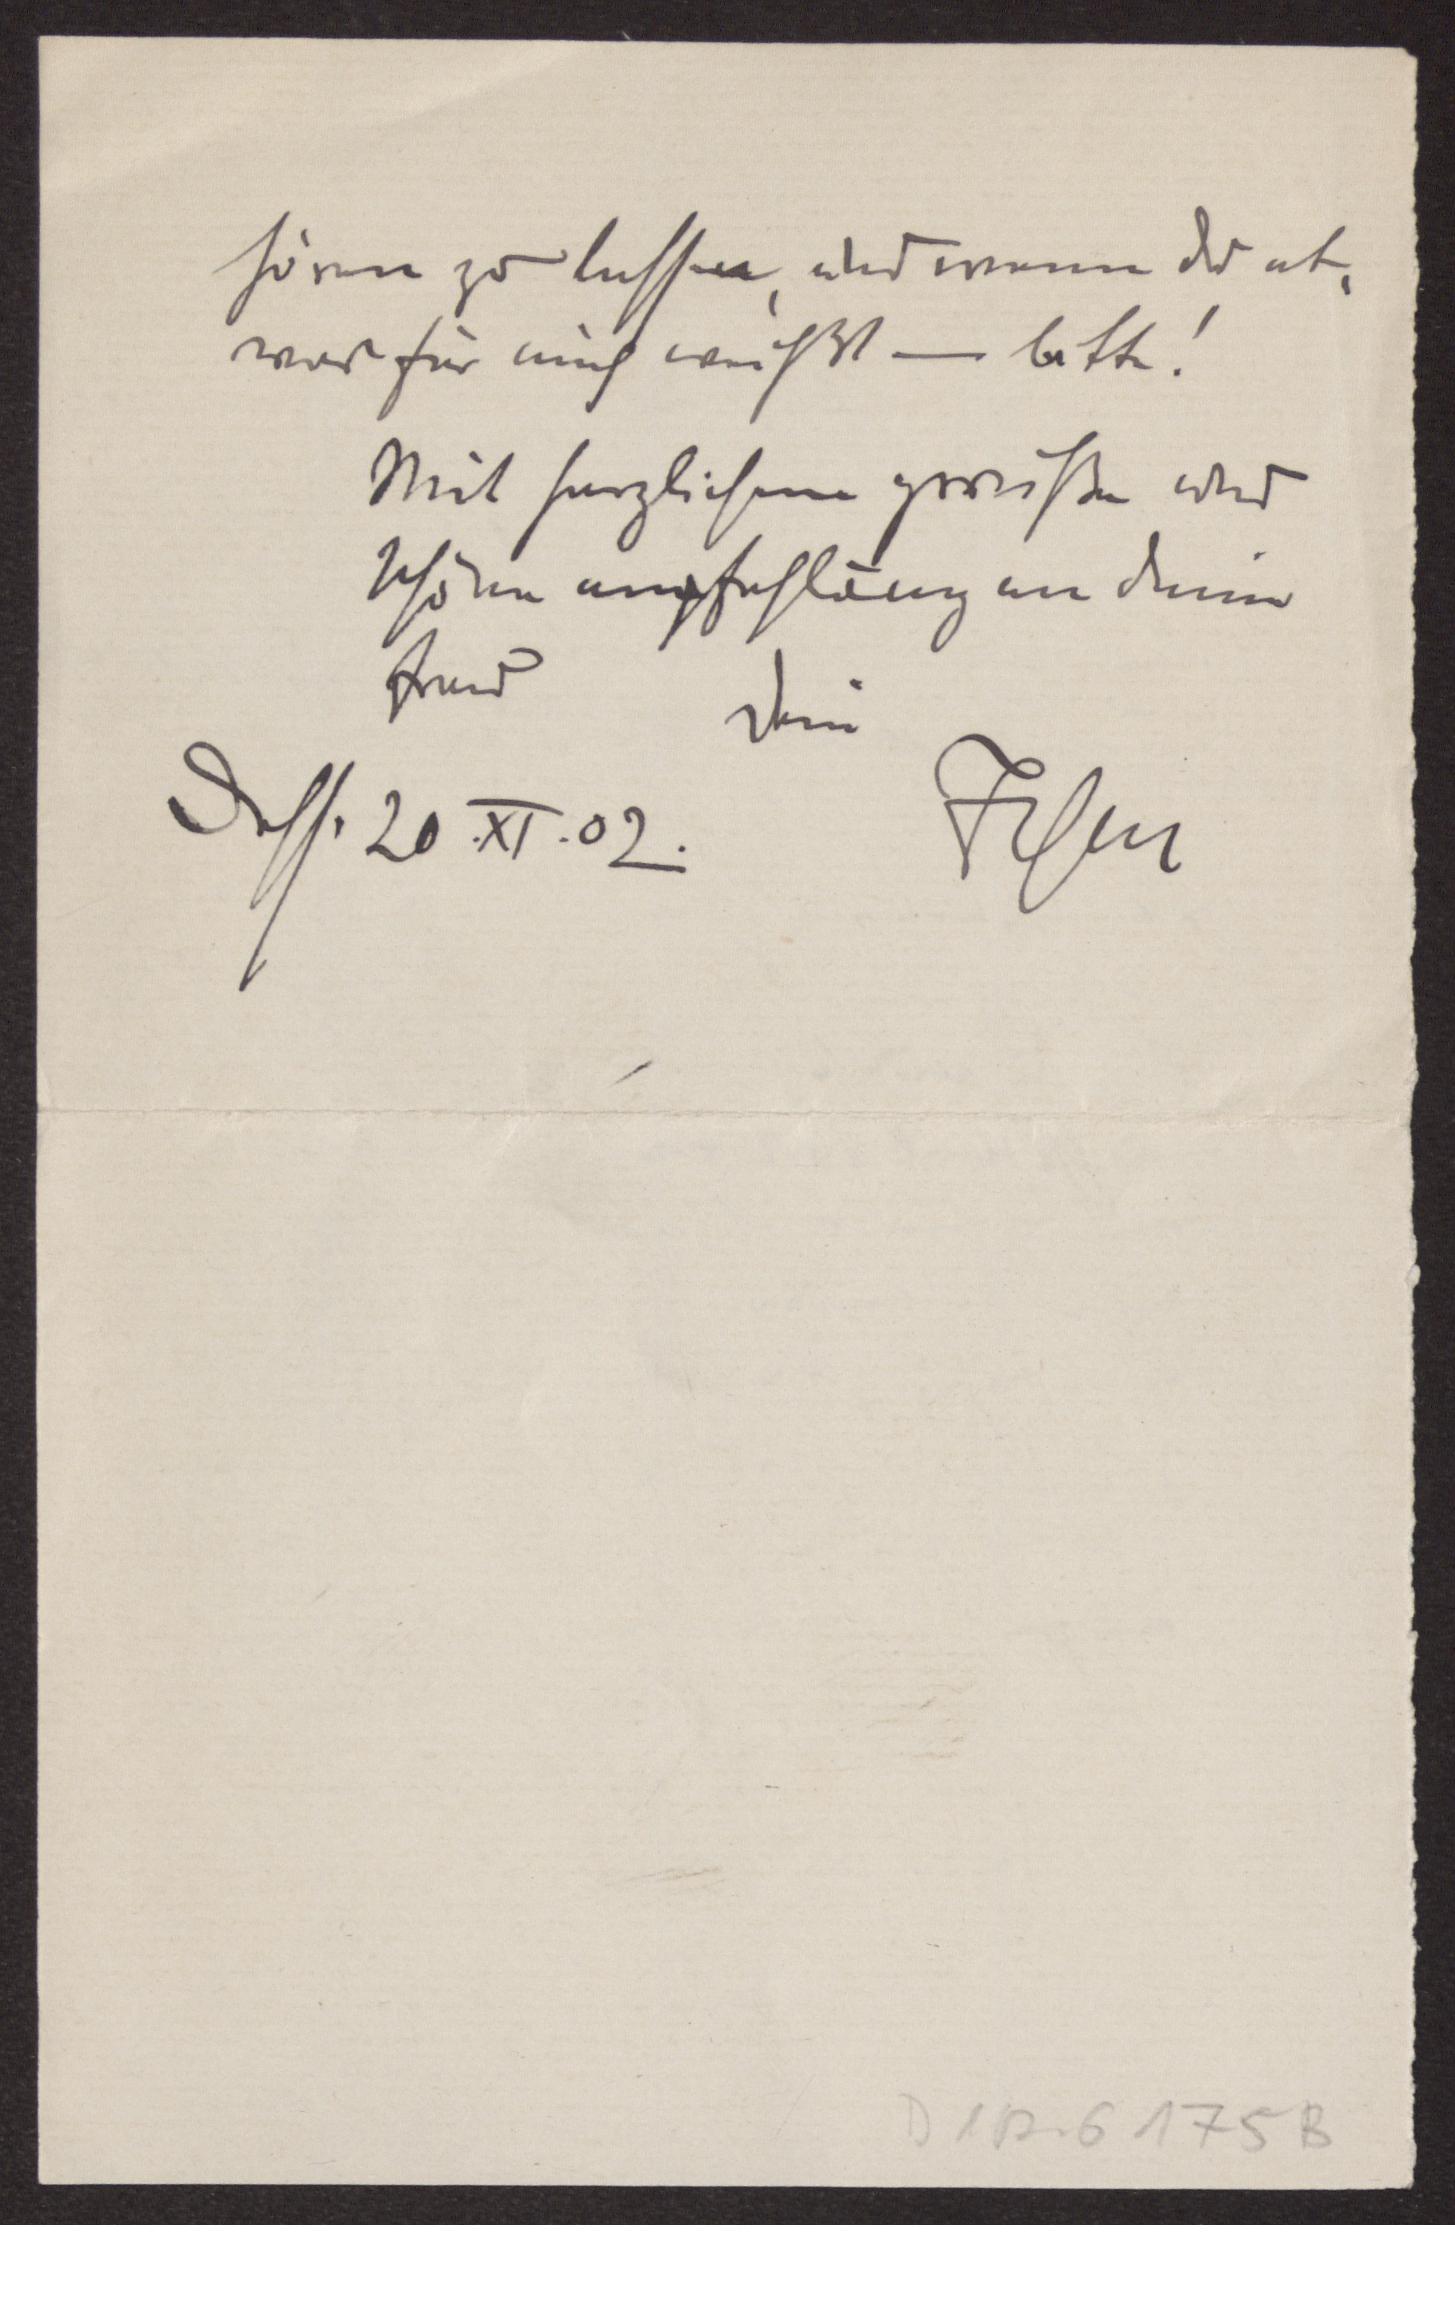 hören zu lassen, und wenn du et-
was für mich weißt — bitte!
Mit herzlichem grüßen und
schöne empfehlung an deine
frau Dein
Dssf. 20.XI.02.
D 6175 B